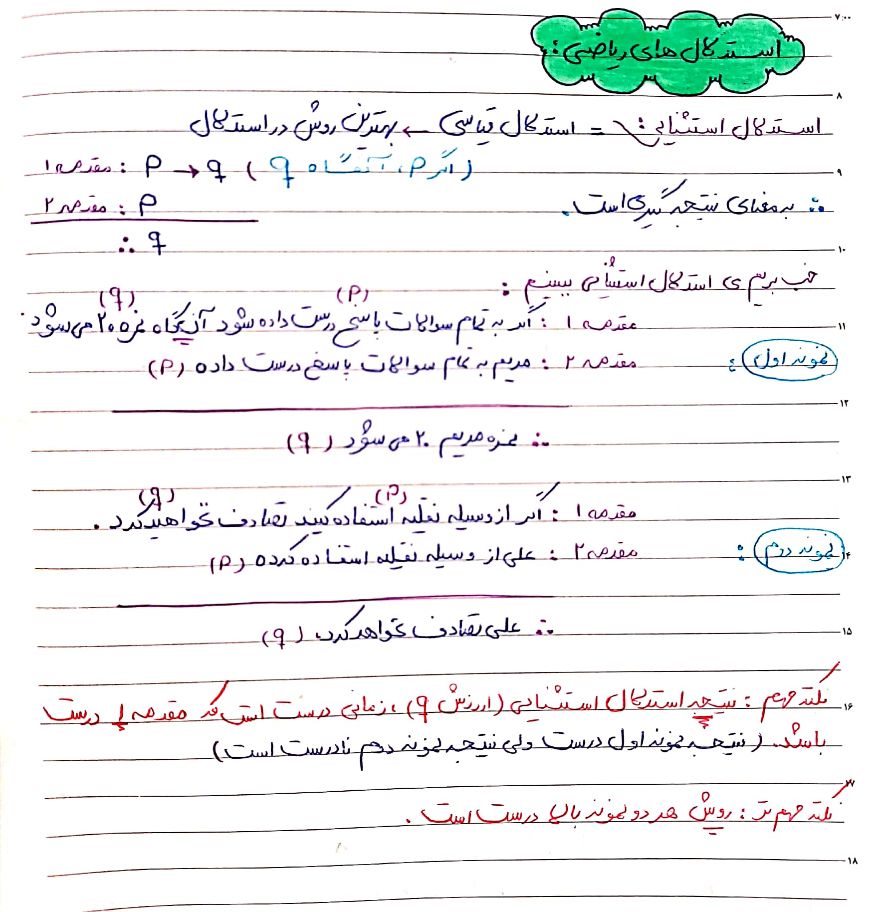 استدلال های ریاضی:
۷:۰۰
۸
استدلال استثنایی: = استدلال قیاسی ← بهترین روش در استدلال
۹
مقدمه ۱ : P → q (اگر P، آنگاه q)
مقدمه ۲ : P
∴ به معنای نتیجه گیری است.
∴ q
۱۰
خب بریم ی استدلال استثنایی ببینیم :
(P) (q)
۱۱
مقدمه ۱ : اگر به تمام سوالات پاسخ درست داده شود آن گاه نمره ۲۰ می شود.
نمونه اول : مقدمه ۲ : مریم به تمام سوالات پاسخ درست داده (P)
۱۲
∴ نمره مریم ۲۰ می شود (q)
۱۳
(P) (q)
مقدمه ۱ : اگر از وسیله نقلیه استفاده کنید تصادف نخواهید کرد.
۱۴
نمونه دوم : مقدمه ۲ : علی از وسیله نقلیه استفاده کرده (P)
∴ علی تصادف نخواهد کرد. (q)
۱۵
نکته مهم : نتیجه استدلال استثنایی (ارزش q)، زمانی درست است که مقدمه ۱ درست
۱۶
باشد. (نتیجه نمونه اول درست ولی نتیجه نمونه دوم نادرست است)
۱۷
نکته مهم تر : روش هر دو نمونه بالا درست است.
۱۸